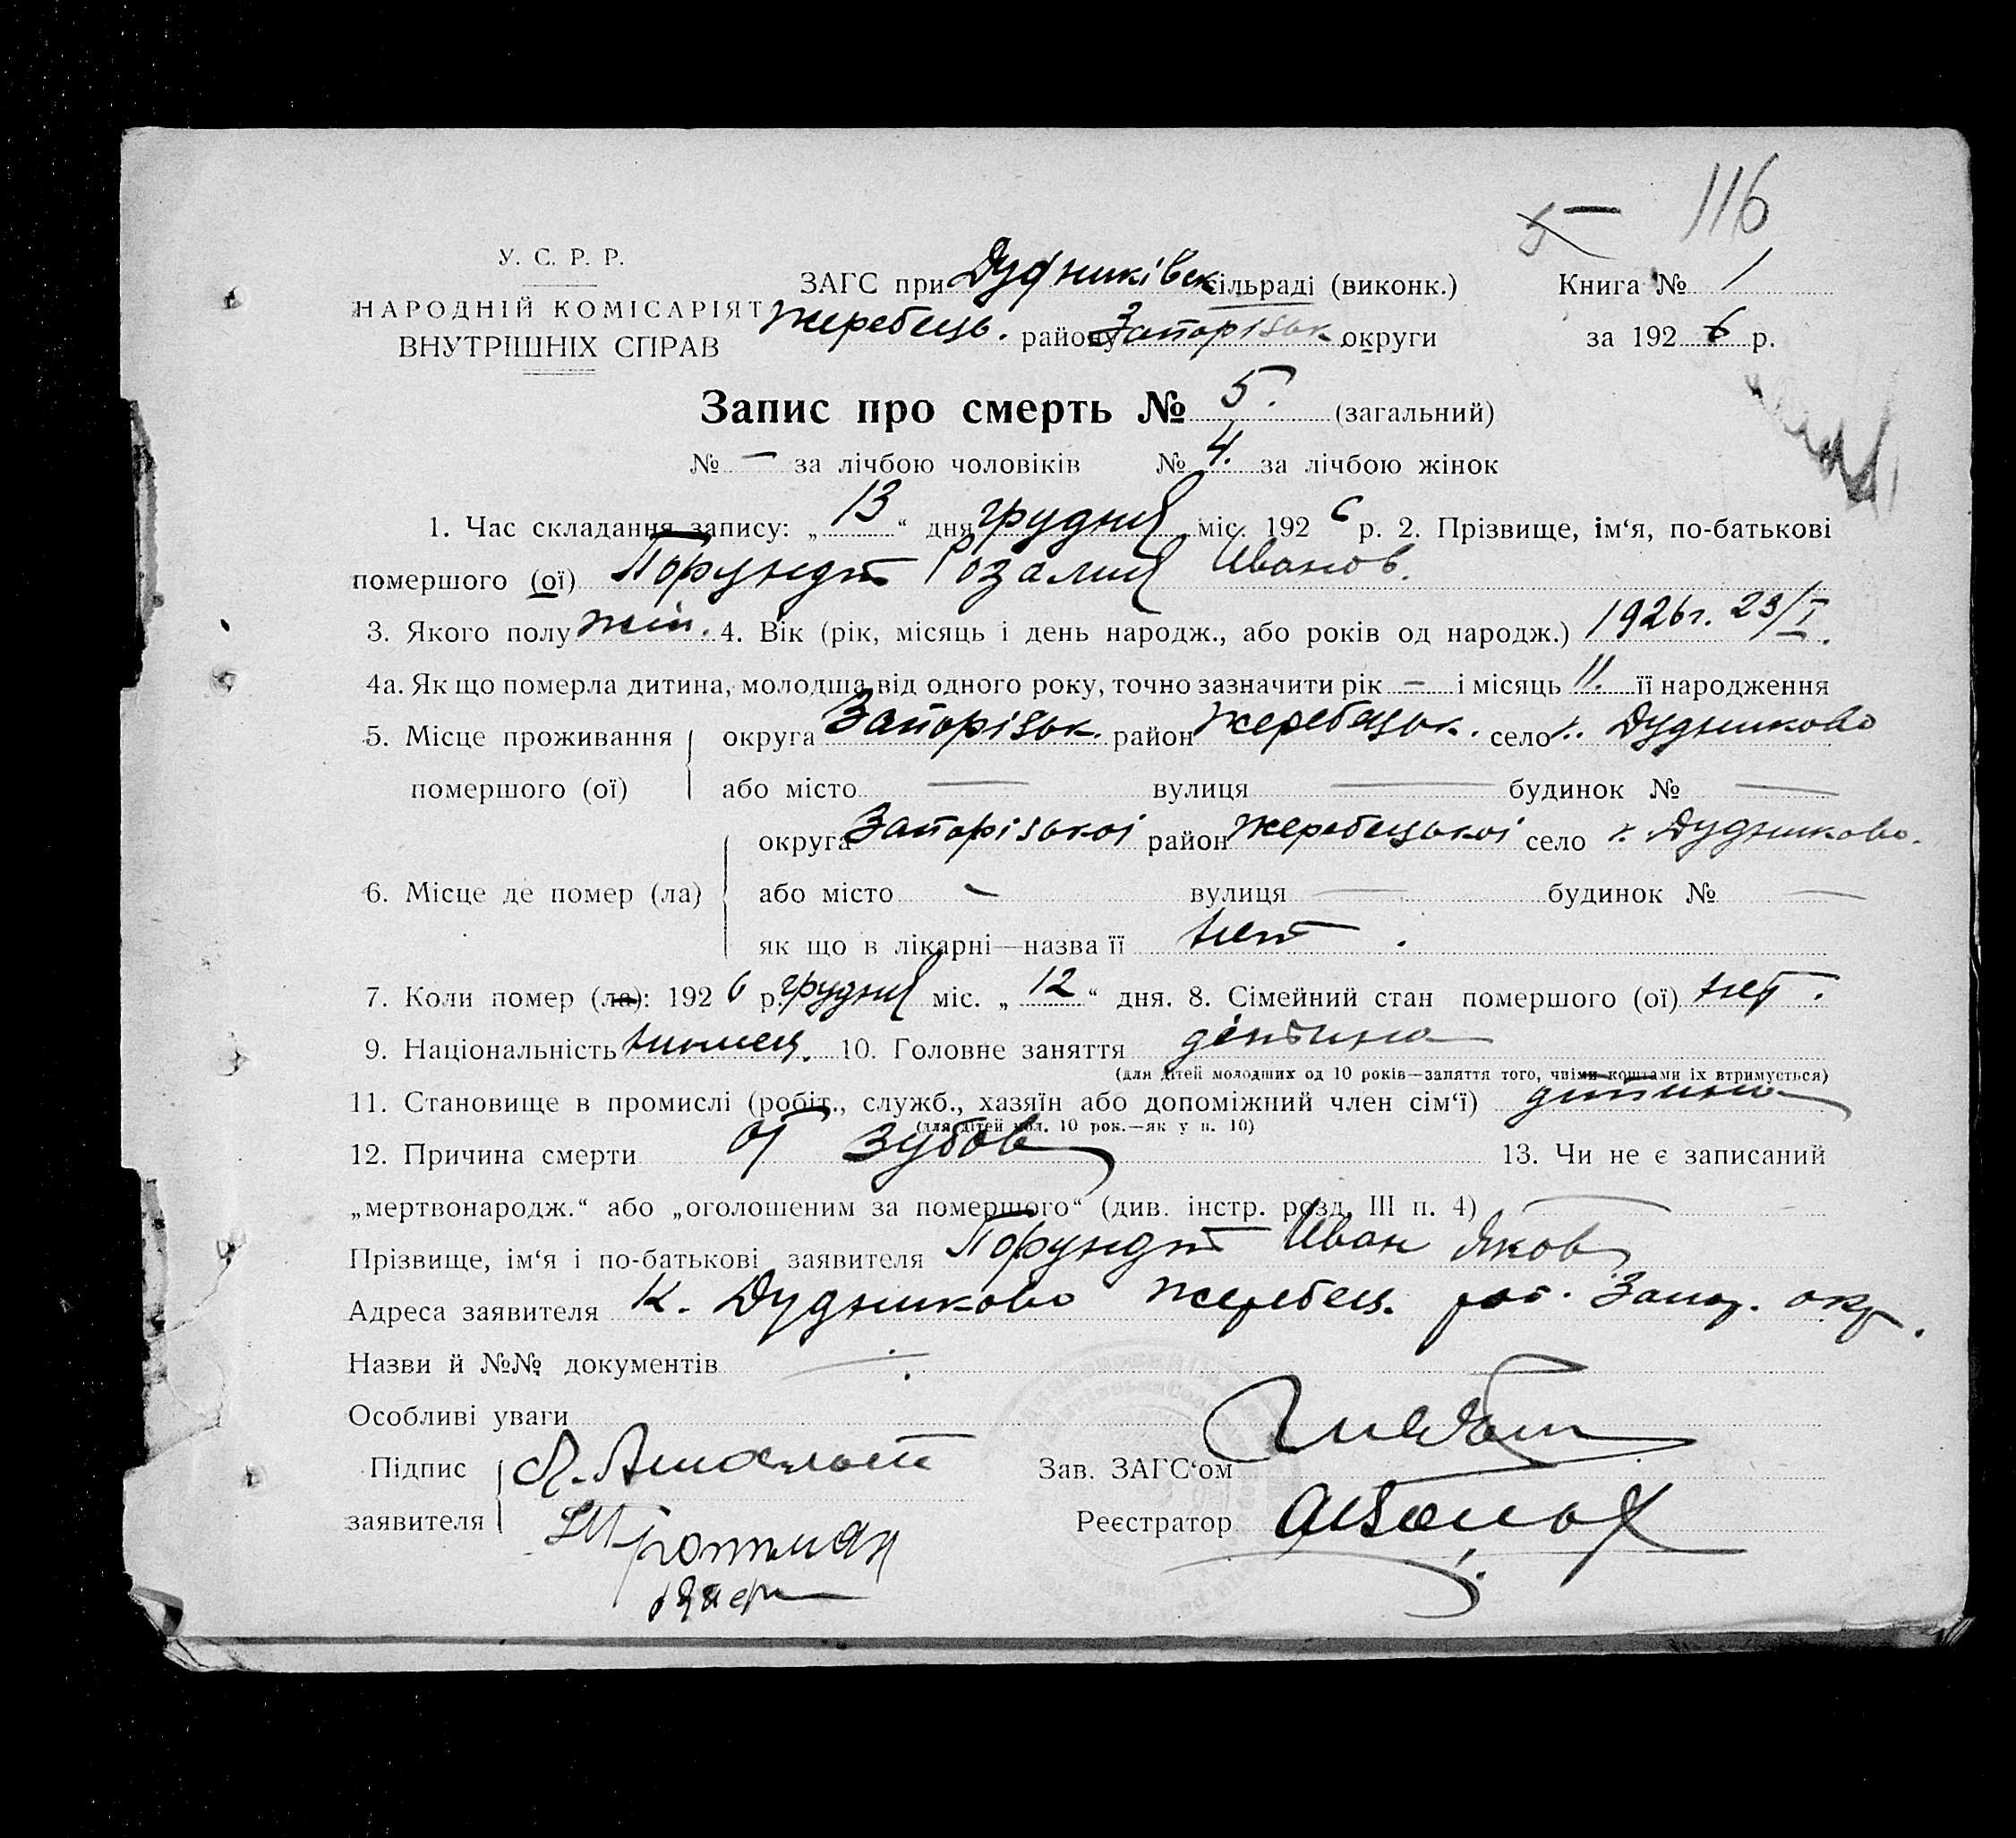 5 116
У. С. Р. Р.
НАРОДНІЙ КОМІСАРІЯТ
ВНУТРІШНІХ СПРАВ
ЗАГС при Дудниківск сільраді (виконк.) Книга № 1
Жеребець. району Запоріськ округи за 1926 р.
Запис про смерть № 5. (загальний)
№ — за лічбою чоловіків № 4. за лічбою жінок
1. Час складання запису: „ 13 “ дня грудня міс. 1926 р. 2. Прізвище, ім‘я, по-батькові
помершого (ої) Порундт Розалия Иванов.
3. Якого полу жін. 4. Вік (рік, місяць і день народж., або років од народж.) 1926 г. 23/I.
4а. Як що померла дитина, молодша від одного року, точно зазначити рік — і місяць 11. її народження
5. Місце проживання округа Запоріськ. район Жеребецьк. село к. Дудниково
помершого (ої) або місто — вулиця — будинок № —
округа Запоріської район Жеребецької село к. Дудниково.
6. Місце де помер (ла) або місто — вулиця — будинок № —
як що в лікарні—назва її нет.
7. Коли помер (ла): 1926 р. грудня міс. „ 12 “ дня. 8. Сімейний стан помершого (ої) нет.
9. Національність 10. Головне заняття дітина
(для дітей молодших од 10 років—заняття того, чиїми коштами їх втримується)
11. Становище в промислі (робіт., служб., хазяїн або допоміжний член сім‘ї) дитина
(для дітей мол. 10 рок.—як у п. 10)
12. Причина смерти от зубов 13. Чи не є записаний
„мертвонародж.“ або „оголошеним за помершого“ (див. інстр. розд. III п. 4) —
Прізвище, ім‘я і по-батькові заявителя Порундт Иван Яков
Адреса заявителя К. Дудниково Жеребец. рай. Запор. окр.
Назви й №№ документів —.
Особливі уваги
Підпис
Зав. ЗАГС‘ом
заявителя
Реєстратор